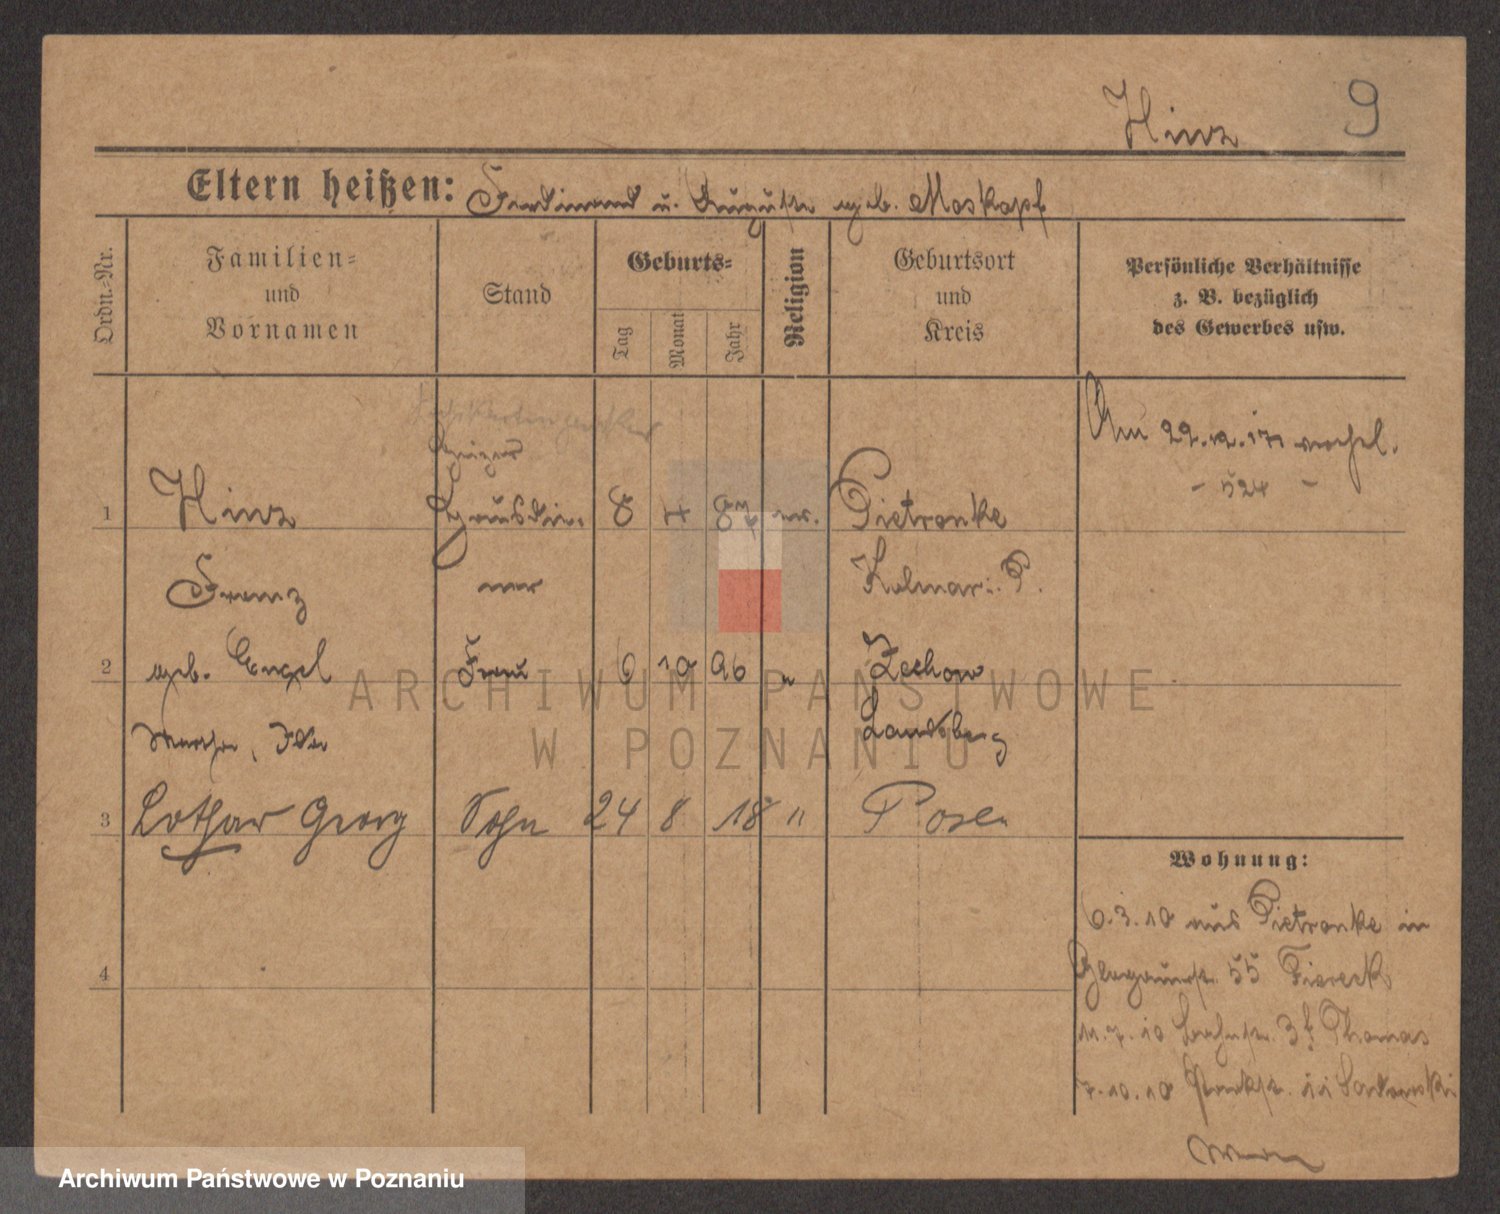 Hinz 9
Eltern heißen: Ferdinand u. Auguste geb. Moskopf
Ordn.-Nr.
Familien=
und
Vornamen
Stand
Geburts=
Tag
Monat
Jahr
Religion
Geburtsort
und
Kreis
Persönliche Verhältnisse
z. B. bezüglich
des Gewerbes usw.
Am 22.12.17 verehel.
- 524 -
1 Hinz Hausdie- 8 4 87 ev. Pietronke
Franz ner Kolmar i. P.
2 geb. Engel Frau 6 10 96 " Zechow
Martha, Ida Landsberg
3 Lothar Georg Sohn 24 8 18 " Posen
4
Wohnung:
6.3.10 aus Pietronke in
Glogauerstr. 55
11.7.10 3 Thomas
7.10.10 Parkstr. 11
ARCHIWUM PAŃSTWOWE
W POZNANIU
Archiwum Państwowe w Poznaniu